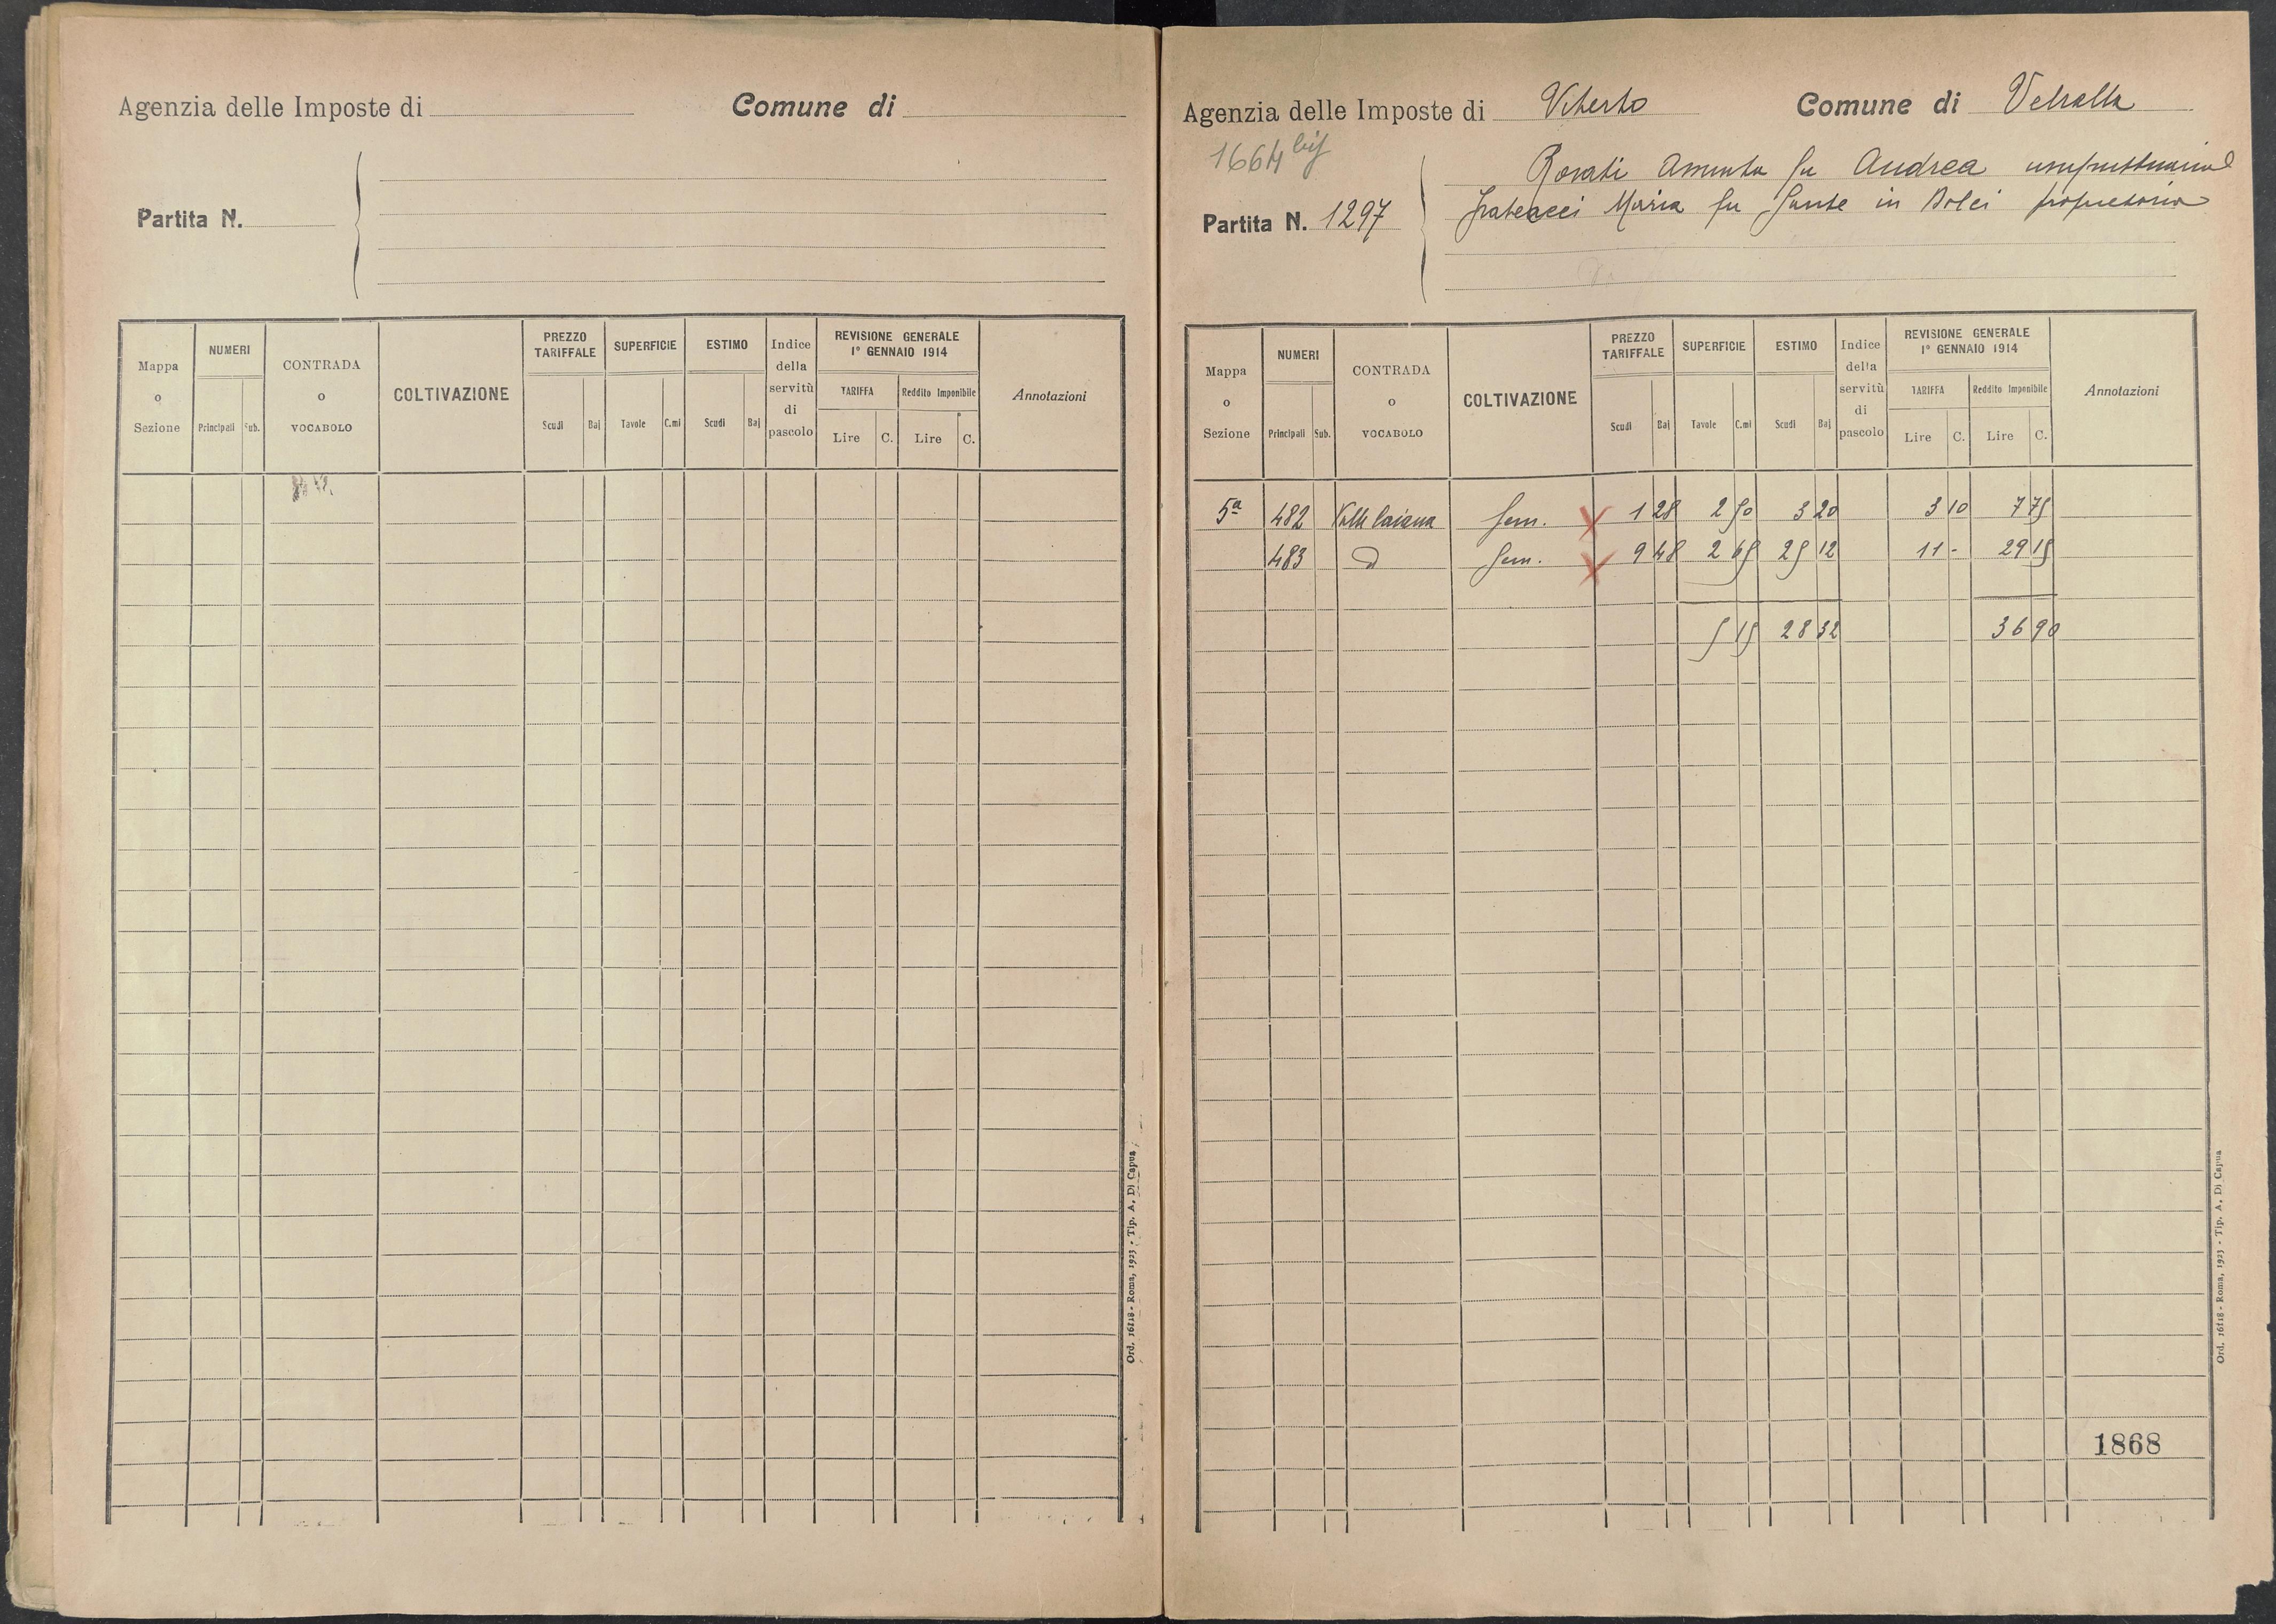 Agenzia delle Imposte di Comune di
Partita N.
Mappa o Sezione NUMERI Principali Sub. CONTRADA o VOCABOLO COLTIVAZIONE PREZZO TARIFFALE Scudi Baj SUPERFICIE Tavole C.mi ESTIMO Scudi Baj Indice della servitù di pascolo REVISIONE GENERALE 1° GENNAIO 1914 TARIFFA Lire C. Reddito Imponibile Lire C. Annotazioni
Ord. 16118 - Roma, 1923 - Tip. A. Di Capua
Agenzia delle Imposte di Viterbo Comune di Vetralla
1664 bis
Rosati Assunta fu Andrea usufruttuaria
Partita N. 1297 Maria fu Sante in Dolci proprietaria
Mappa o Sezione NUMERI Principali Sub. CONTRADA o VOCABOLO COLTIVAZIONE PREZZO TARIFFALE Scudi Baj SUPERFICIE Tavole C.mi ESTIMO Scudi Baj Indice della servitù di pascolo REVISIONE GENERALE 1° GENNAIO 1914 TARIFFA Lire C. Reddito Imponibile Lire C. Annotazioni
5ª 482 Valle Caiana Sem. 1 28 2 50 3 20 3 10 7 75
483 D Sem. 9 48 2 65 25 12 11 - 29 15
5 15 28 32 36 90
1868
Ord. 16118 - Roma, 1923 - Tip. A. Di Capua